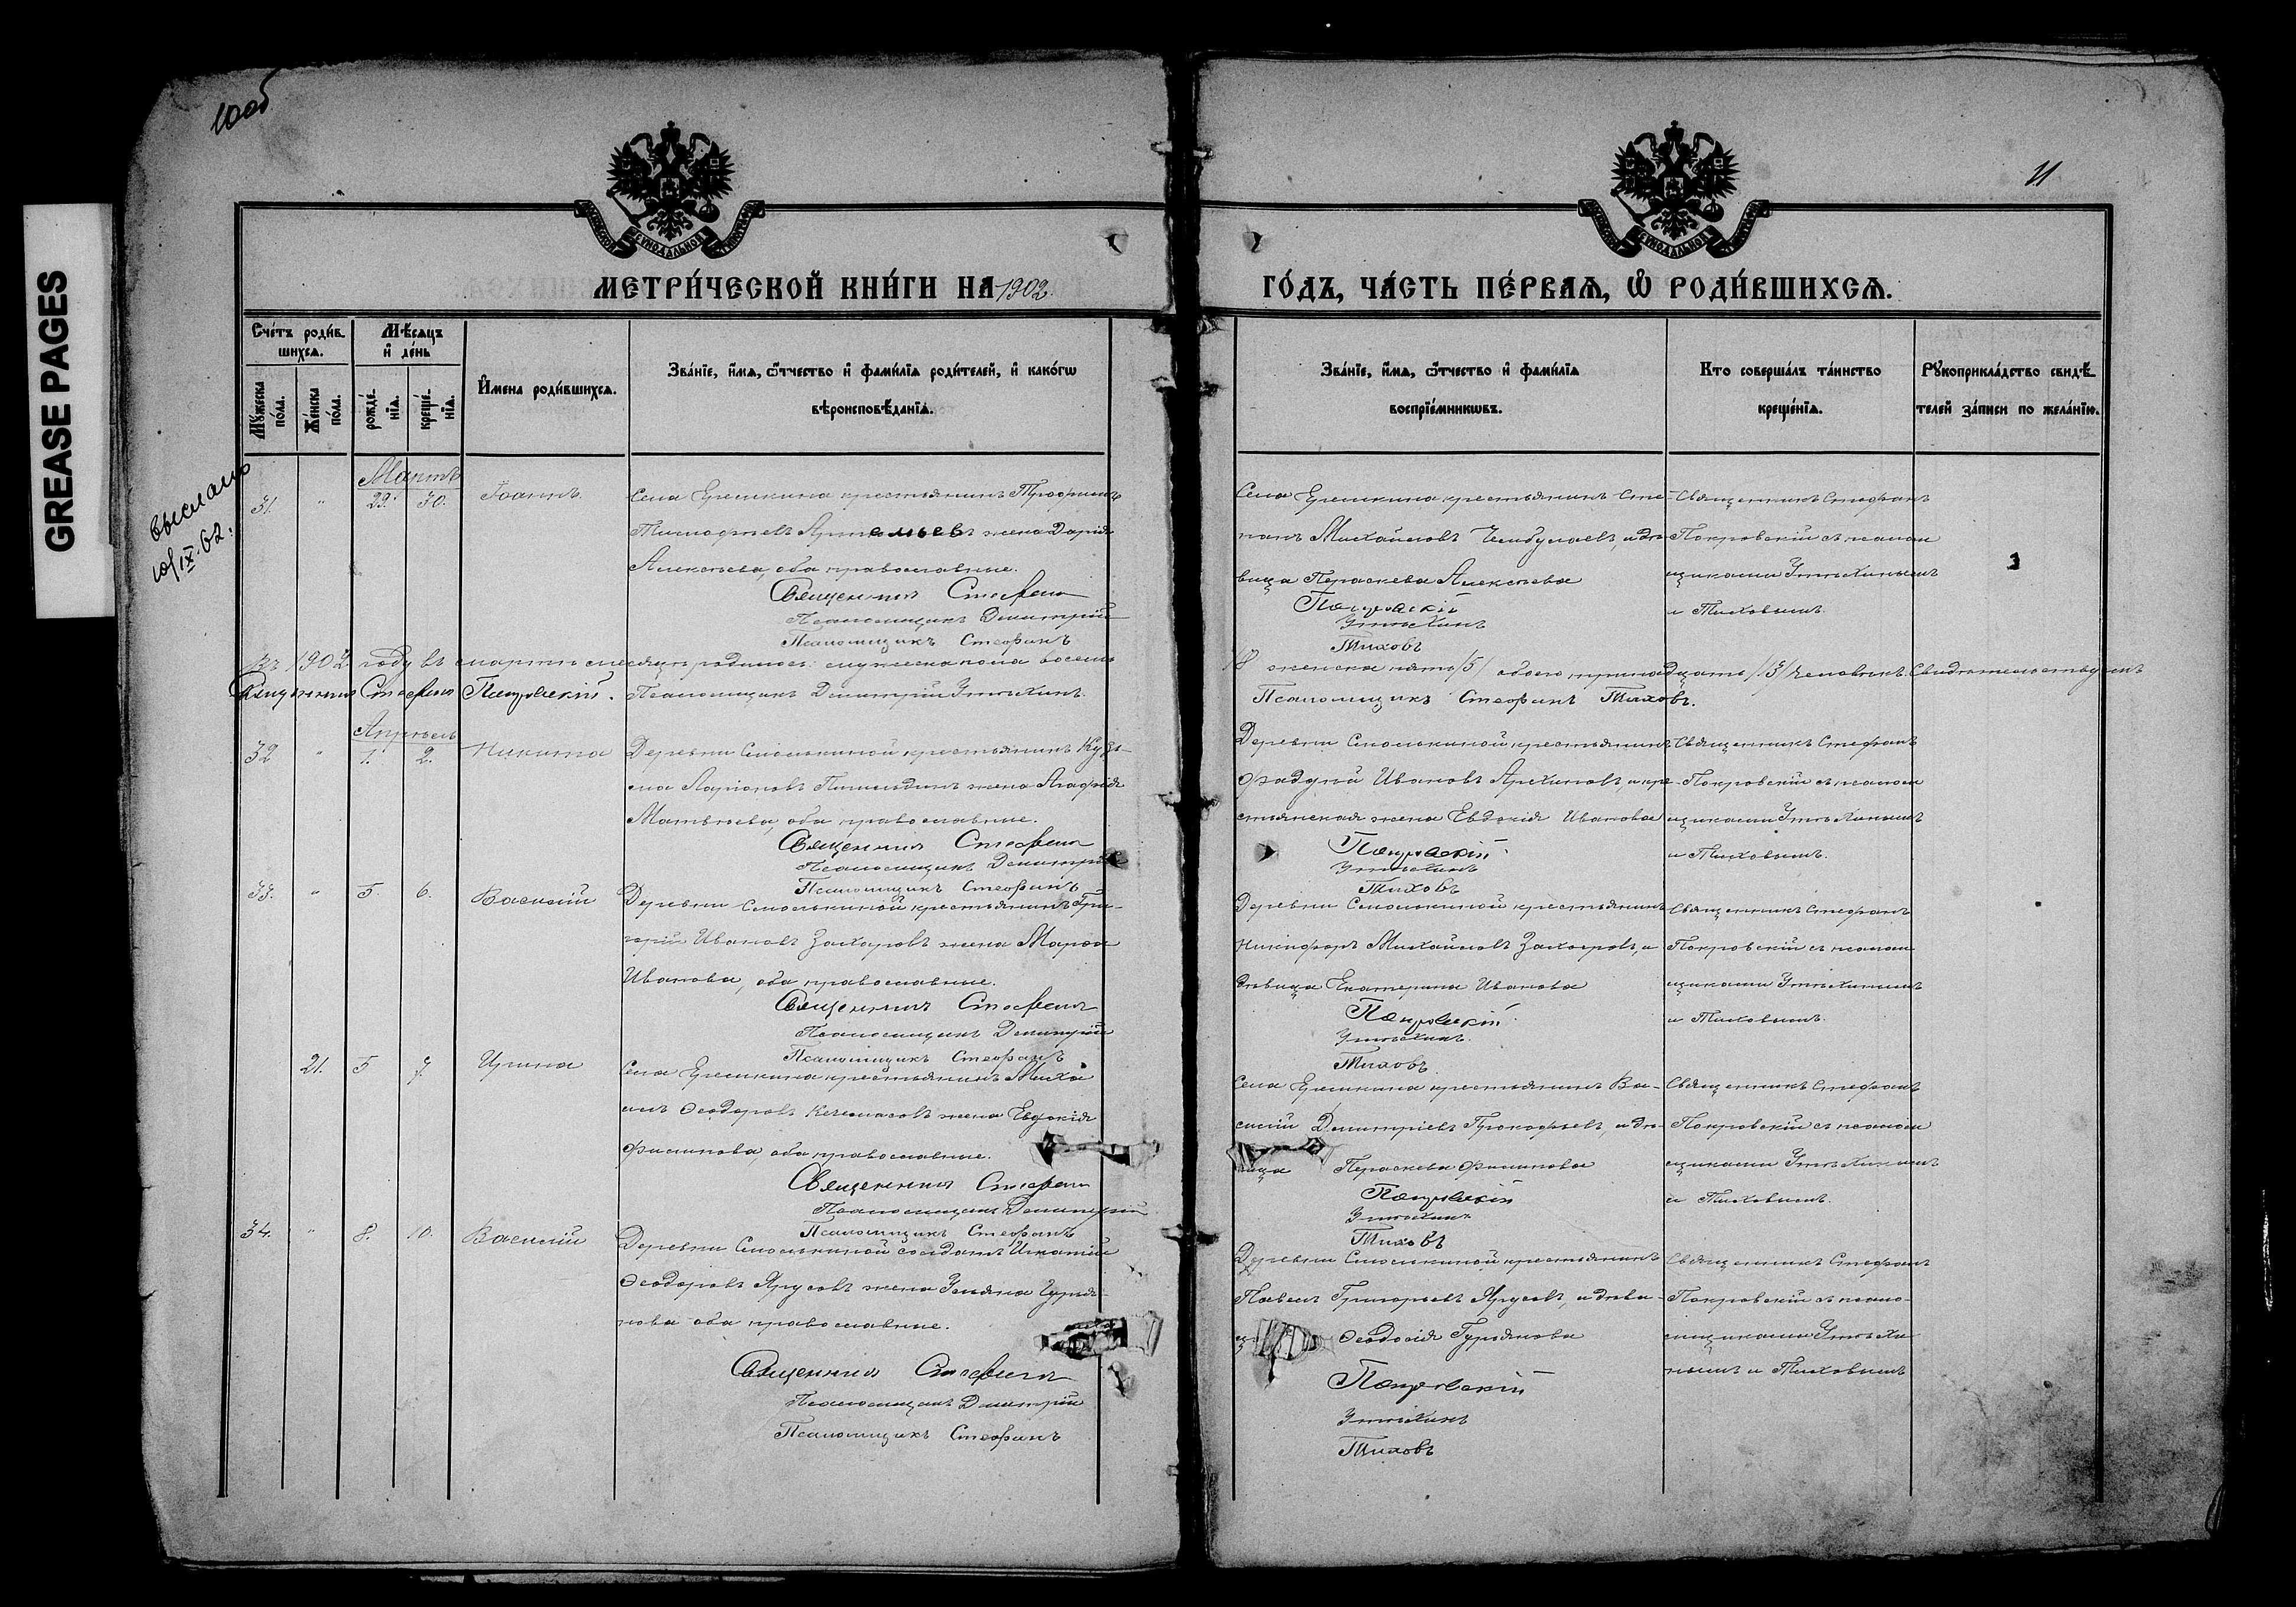 10об
11
GREASE PAGES
МЕТРИ́ЧЕСКОЙ КНИ́ГИ НА 1902
ГО́ДЪ, ЧА́СТЬ ПЕ́РВАѦ, Ѡ҆ РОДИ́ВШИХСѦ.
Сче́тъ роди́в
шихсѧ.
Мꙋ́жеска
по́ла.
Же́нска
по́ла.
Мѣ́сѧцъ
и҆ де́нь
рожде́
нїѧ.
креще́
нїѧ.
И҆мена роди́вшихсѧ.
Зва́нїе, и҆́мѧ, ѻ҆́тчество и҆ фами́лїѧ роди́телей, и҆ како́гѡ
вѣроисповѣ́данїѧ.
Зва́нїе, и҆́мѧ, ѻ҆́тчество и҆ фами́лїѧ
воспрїе́мникѡвъ.
Кто соверша́лъ та́инство
креще́нїѧ.
Рꙋкоприкла́дство свидѣ́
телей за́писи по жела́нїю.
выслано
10/IX.62.
Мартъ
31.
"
29.
30.
Іоаннъ.
Села крестьянинъ Трофимъ
Тимофѣевъ Артемьевъ жена Дарія
Алексѣева, оба православные.
Священникъ Стефанъ
Псаломщикъ Димитрій
Псаломщикъ Стефанъ
Села крестьянинъ Сте-
панъ Михайловъ и дѣ-
вица Параскева Алексѣева
Покровскій
Утѣхинъ
Тиховъ
Священникъ Стефанъ
Покровскій съ псалом
щиками Утѣхинымъ
и Тиховымъ.
Въ 1902 году въ мартѣ мѣсяцѣ родилось: мужеска пола восемь
/8 женска пять /5/ обоего тринадцать /13/ человѣкъ. Свидѣтельствуемъ
Священникъ Стефанъ Покровскій. Псаломщикъ Димитрій Утѣхинъ.
Псаломщикъ Стефанъ Тиховъ.
Апрѣль
32
"
1.
2.
Никита
Деревни Смолькиной крестьянинъ Кузь-
ма Ларіоновъ жена Агафія
Матвѣева, оба православные.
Священникъ Стефанъ
Псаломщикъ Димитрій
Псаломщикъ Стефанъ
Деревни Смолькиной крестьянинъ
Фадѣй Ивановъ Архиповъ, и кре-
стьянская жена Евдокія Иванова
Покровскій
Утѣхинъ
Тиховъ
Священникъ Стефанъ
Покровскій съ псалом
щиками Утѣхинымъ
и Тиховымъ.
33.
"
5
6.
Василій
Деревни Смолькиной крестьянинъ Гри-
горій Ивановъ Захаровъ жена Марѳа
Иванова, оба православные.
Священникъ Стефанъ
Псаломщикъ Димитрій
Псаломщикъ Стефанъ
Деревни Смолькиной крестьянинъ
Никифоръ Михайловъ Захаровъ, и
дѣвица Екатерина Иванова
Покровскій
Утѣхинъ.
Тиховъ
Священникъ Стефанъ
Покровскій съ псалом
щиками Утѣхинымъ
и Тиховымъ.
21.
5
7.
Ирина
Села крестьянинъ Миха
илъ Ѳеодоровъ жена Евдокія
Филипова, оба православные.
Священникъ Стефанъ
Псаломщикъ Димитрій
Псаломщикъ Стефанъ
Села крестьянинъ Ва-
силій Димитріевъ Прокофьевъ, и дѣ-
вица Параскева Филипова
Покровскій
Утѣхинъ
Тиховъ
Священникъ Стефанъ
Покровскій съ псалом
щиками Утѣхинымъ
и Тиховымъ.
34.
"
8.
10.
Василій
Деревни Смолькиной солдатъ Игнатій
Ѳеодоровъ Ярусовъ жена Ульяна Гурья-
нова оба православные.
Священникъ Стефанъ
Псаломщикъ Димитрій
Псаломщикъ Стефанъ
Деревни Смолькиной крестьянинъ
Павелъ Григорьевъ Ярусовъ, и дѣви-
ца Ѳеодосія Гурьянова
Покровскій
Утѣхинъ
Тиховъ
Священникъ Стефанъ
Покровскій съ псало-
мщиками Утѣхи
нымъ и Тиховымъ